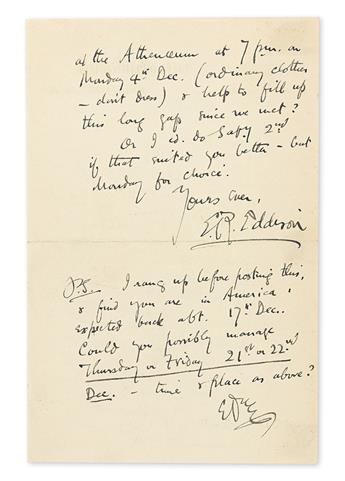 at the Athenaeum at 7 p.m. on
Monday 4th Dec. (ordinary clothes
– don't dress) & help to fill up
this long gap since we met?
Or I cd. do Saty 2nd
if that suited you better – but
Monday for choice.
Yours ever,
E.R. Eddison
P.S. I rang up before posting this,
& find you are in America,
expected back abt. 17th Dec..
Could you possibly manage
Thursday or Friday 21st or 22nd
Dec. – time & place as above?
ERE